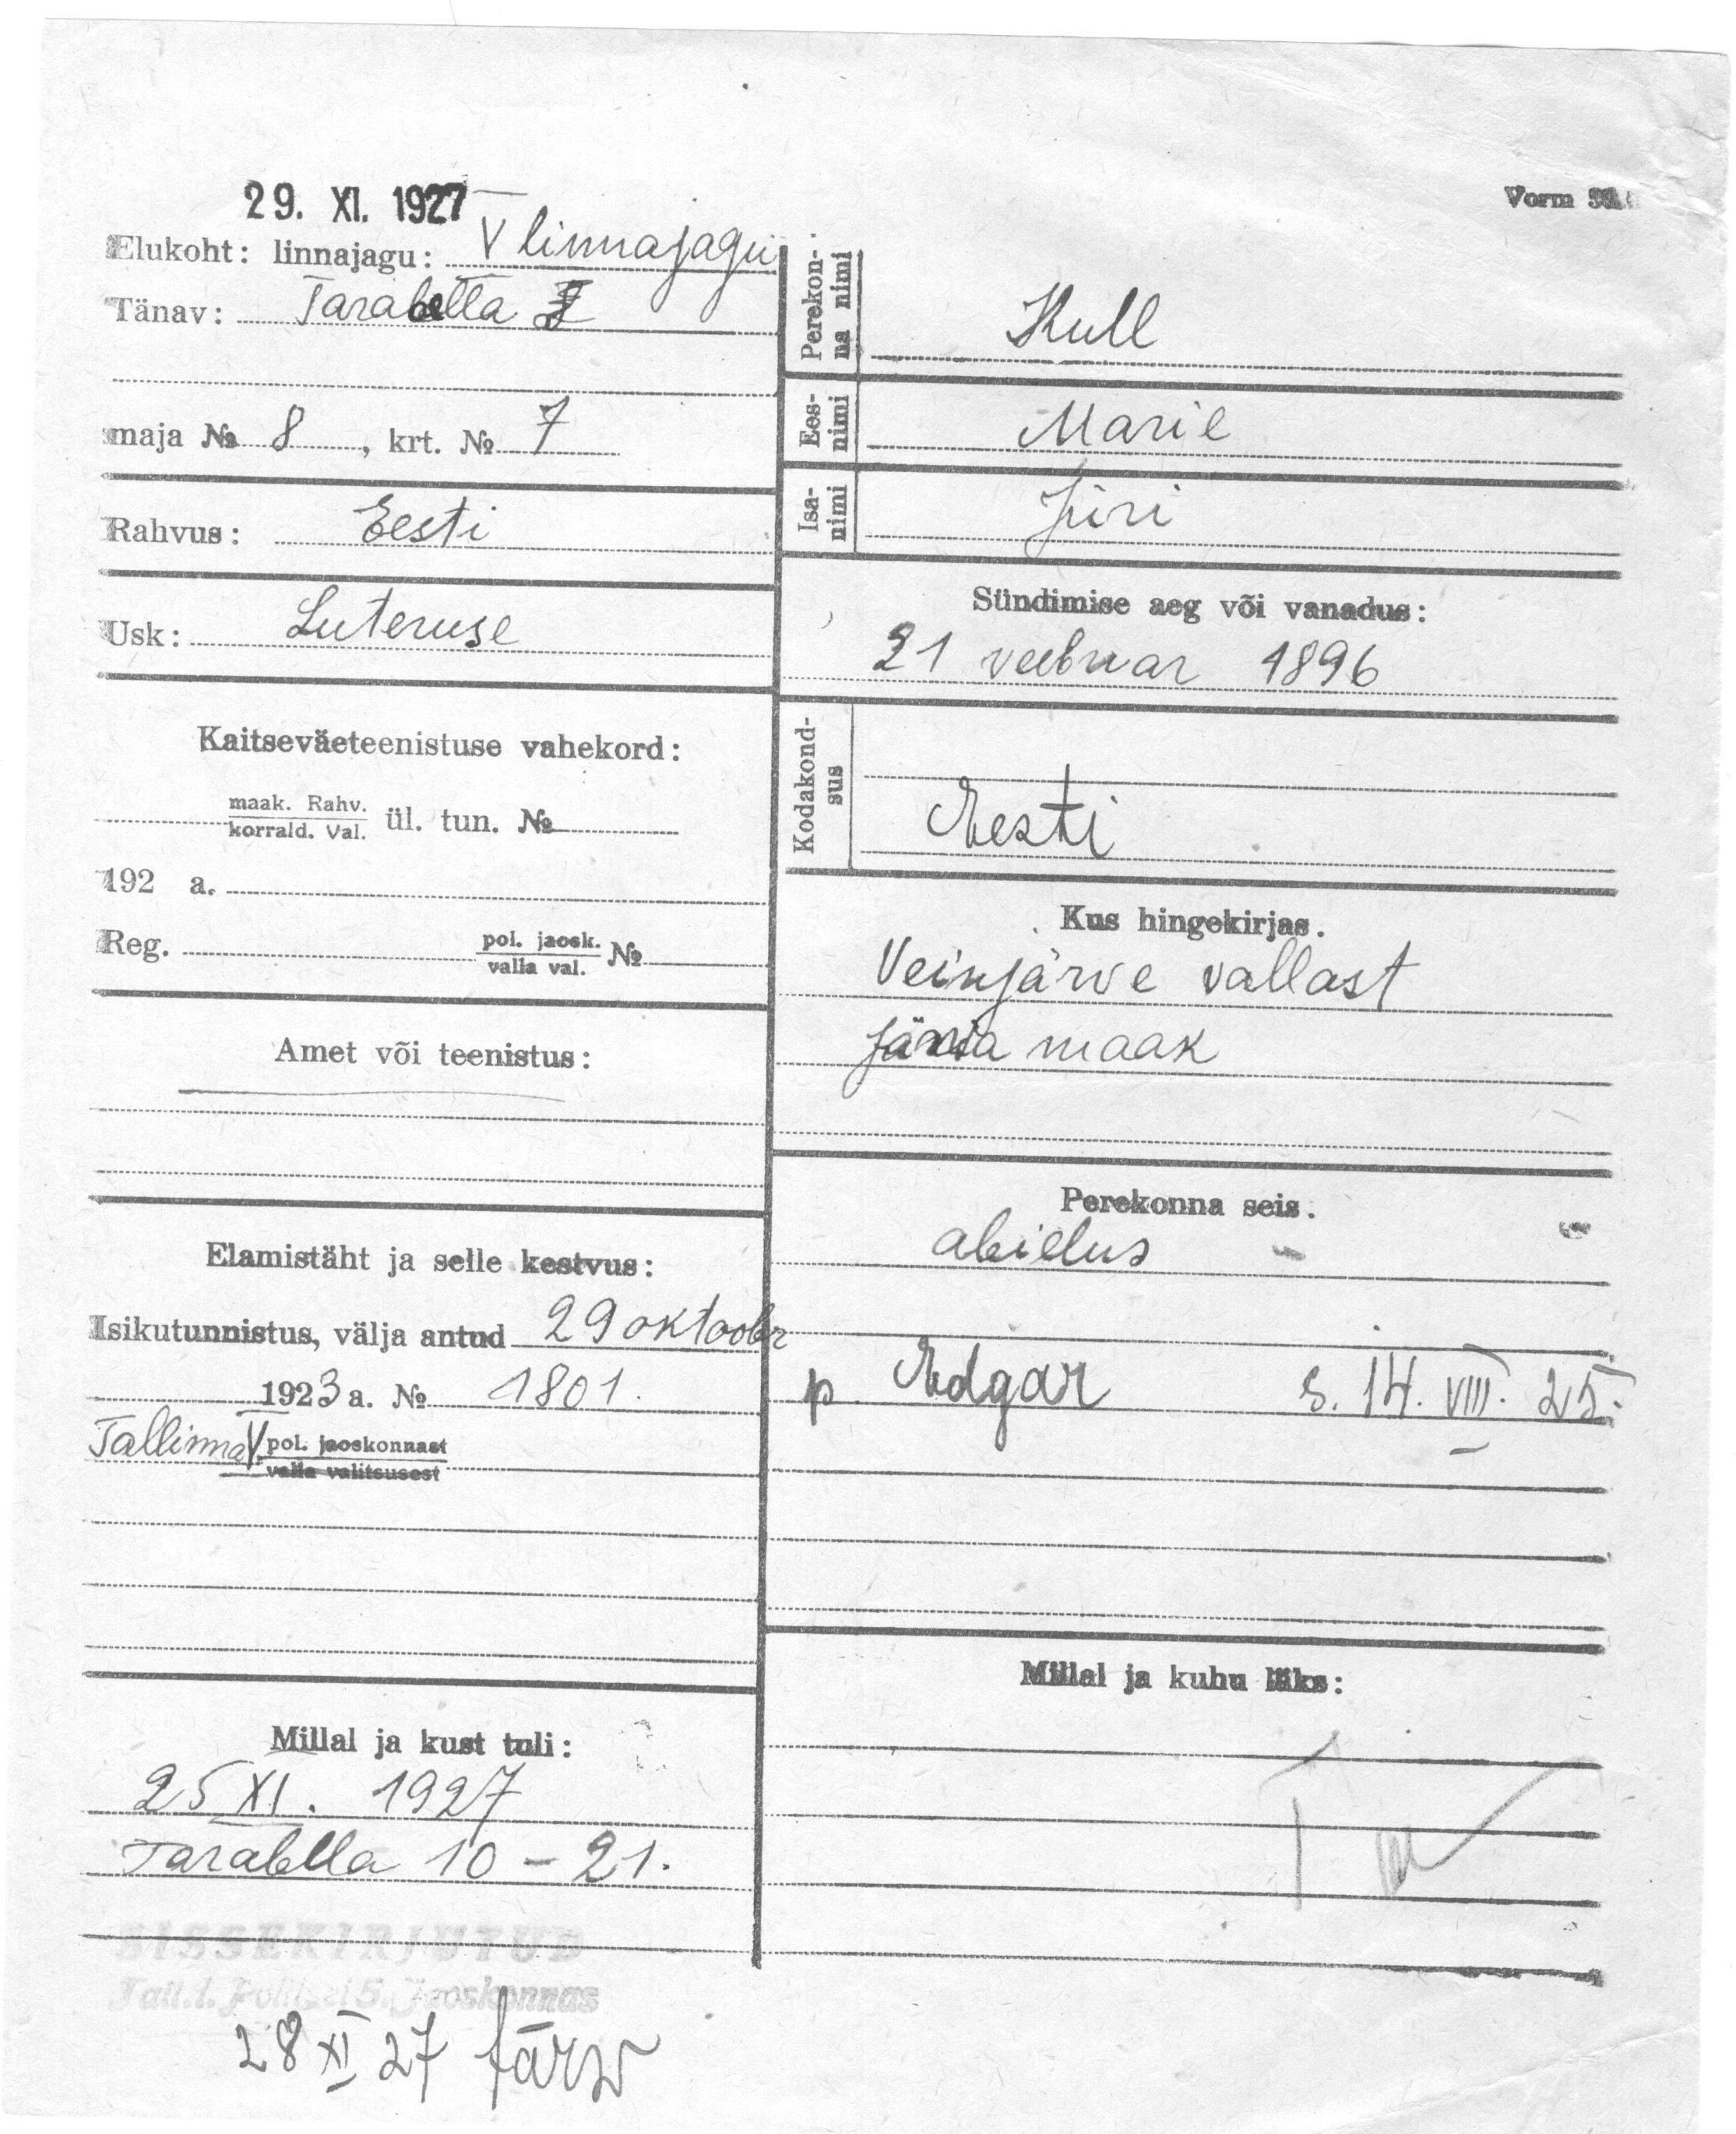 29. XI. 1927
Vorm
Elukoht: linnajagu: V linnajagu
Tänav: Tarabella
maja № 8, krt. № 7
Rahvus: Eesti
Usk: Luteruse
Kaitseväeteenistuse vahekord:
maak. Rahv.
korrald. Val. ül. tun. №
192 a.
Reg. pol. jaosk.
valla val. №
Amet või teenistus:
Elamistäht ja selle kestvus:
Isikutunnistus, välja antud 29 oktoobr
1923 a. № 1801.
Tallinna V pol. jaoskonnast
valla valitsusest
Millal ja kust tuli:
25 XI. 1927
Tarabella 10 - 21.
SISSEKIRJUTUD
Tall. l. Politsei 5. Jaoskonnas
28 XI 27 Järw
Perekon-
na nimi Kull
Ees-
nimi Marie
Isa-
nimi Jüri
Sündimise aeg või vanadus:
21 veebruar 1896
Kodakond-
sus Eesti
Kus hingekirjas.
Veinjärve vallast
Järva maak
Perekonna seis.
abielus
p Edgar s. 14. VIII. 25.
Millal ja kuhu läks: